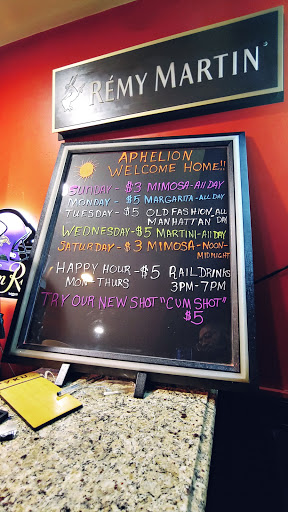 RÉMY MARTIN
APHELION
WELCOME HOME!!
SUNDAY - $3 MIMOSA - All DAY
MONDAY - $5 MARGARITA - ALL DAY
TUESDAY - $5 OLD FASHION ALL DAY
MANHATTAN
WEDNESDAY - $5 MARTINI - All DAY
SATURDAY - $3 MIMOSA - NOON-
MIDNIGHT
HAPPY HOUR - $5 RAIL DRINKS
MON - THURS 3PM - 7PM
TRY OUR NEW SHOT "CUM SHOT"
$5